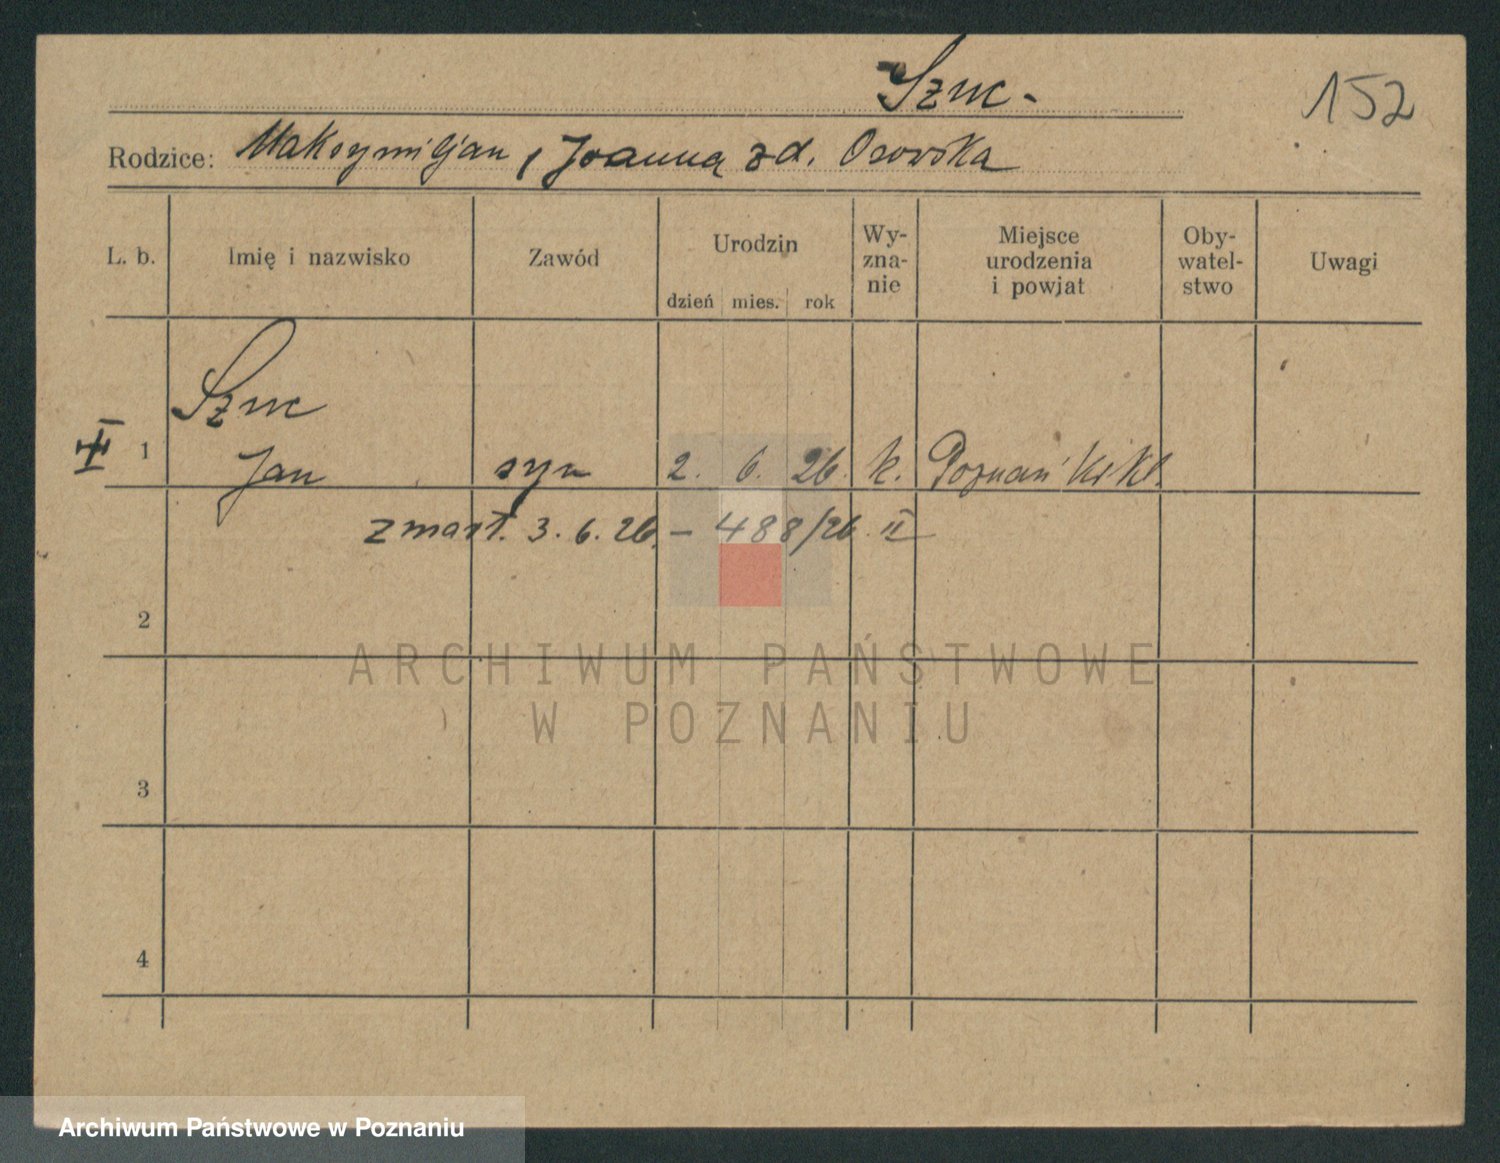 Szuc -
152
Rodzice: Maksymiljan, Joanna zd. Osowska
L. b. Imię i nazwisko Zawód Urodzin dzień mies. rok Wy-zna-nie Miejsce urodzenia i powiat Oby-watel-stwo Uwagi
Szuc
1 Jan syn 2. 6. 26. k. Poznań
zmarł. 3. 6. 26. - 488/26 II
2
ARCHIWUM PAŃSTWOWE
W POZNANIU
3
4
Archiwum Państwowe w Poznaniu